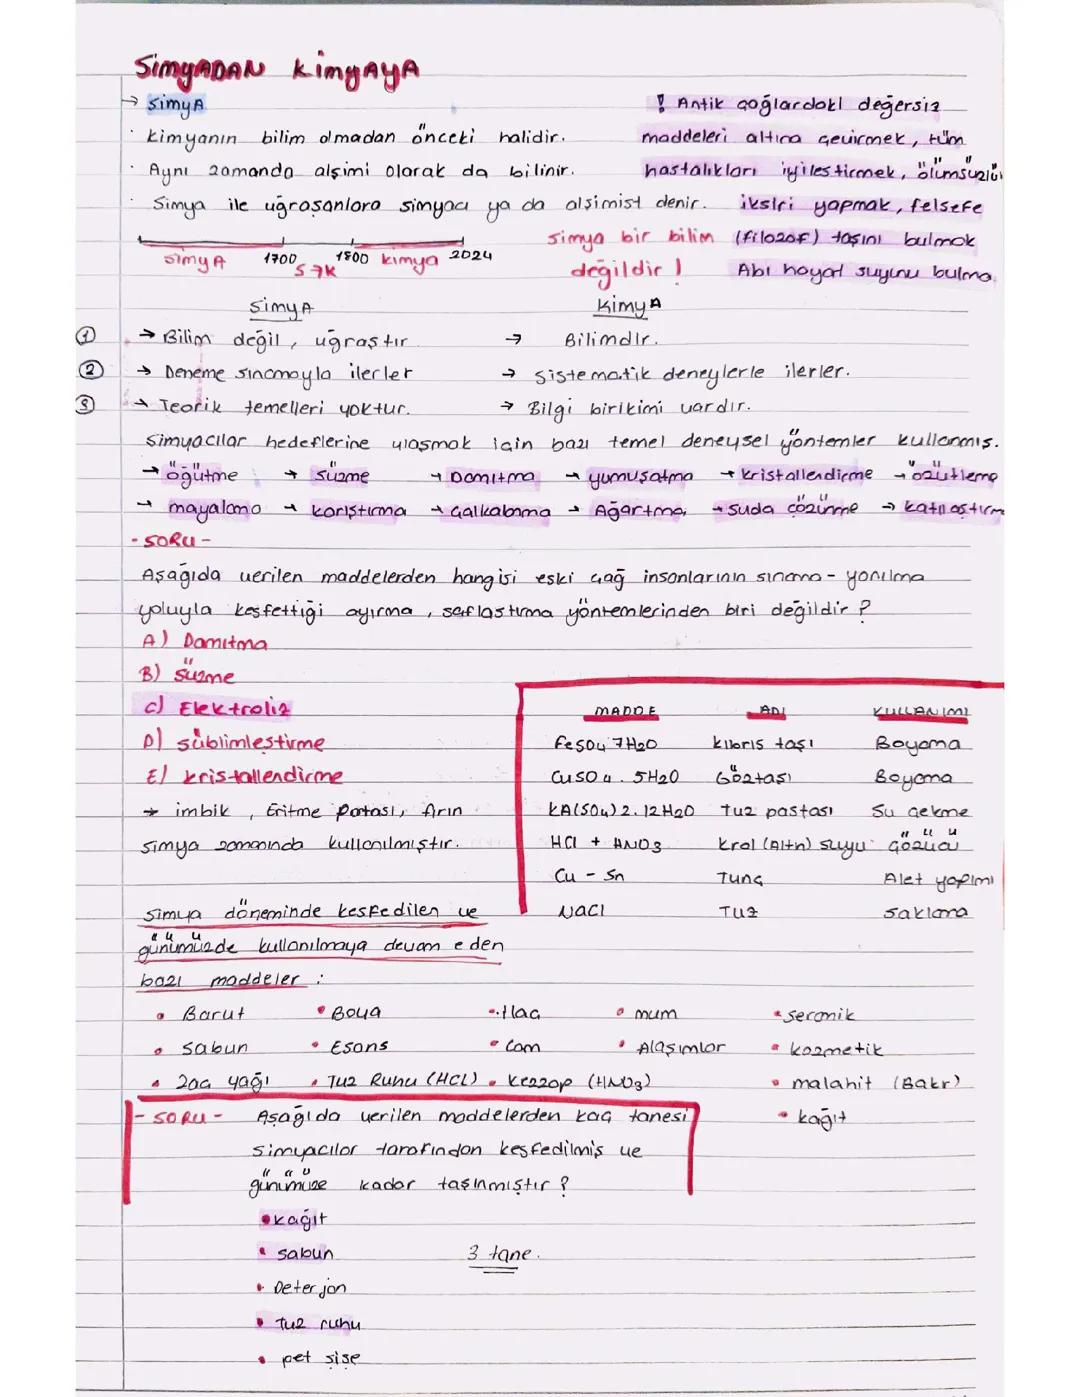 SimyADAN KimyAyA
→ SimyA
· Kimyanın bilim olmadan önceki halidir.
· Aynı zamanda alşimi olarak da bilinir.
· Simya ile uğraşanlara simyacı ya da alşimist denir.
! Antik çağlardaki değersiz
maddeleri altına çevirmek, tüm
hastalıkları iyileştirmek, ölümsüzlük
iksiri yapmak, felsefe
(filozof) taşını bulmak
Abı hayat suyunu bulma.
simya bir bilim
değildir!
SimyA 1700 S⁷K 1800 kimya 2024
SimyA KimyA
① → Bilim değil, uğraştır. → Bilimdir.
② → Deneme sınamayla ilerler → Sistematik deneylerle ilerler.
③ → Teorik temelleri yoktur. → Bilgi birikimi vardır.
Simyacılar hedeflerine ulaşmak için bazı temel deneysel yöntemler kullanmış.
→ öğütme → süzme → Damıtma → yumuşatma → kristallendirme → özütleme
→ mayalama → karıştırma → Çalkalama → Ağartma, → Suda çözünme → katılaştırma
- SORU -
Aşağıda verilen maddelerden hangisi eski çağ insanlarının sınama - yanılma
yoluyla keşfettiği ayırma, saflaştırma yöntemlerinden biri değildir?
A) Damıtma
B) Süzme
C) Elektroliz
D) süblimleştirme
E) kristallendirme
→ imbik, Eritme potası, Arın
simya zamanında kullanılmıştır.
MADDE ADI KULLANIMI
FeSO4 7H2O kıbrıs taşı Boyama
CuSO4 . 5H2O Göztaşı Boyama
KAl(SO4)2.12H2O Tuz pastası Su çekme
HCl + HNO3 kral (Altn) suyu Çözücü
Cu - Sn Tunç Alet yapımı
NaCl Tuz saklama
Simya döneminde keşfedilen ve
günümüzde kullanılmaya devam eden
bazı maddeler :
• Barut • Boya • ilaç • mum • seramik
• sabun • Esans • Cam • Alaşımlar • kozmetik
• Zaç yağı • Tuz Ruhu (HCL) • Kezzap (HNO3) • malahit (Bakr)
• kağıt
- SORU - Aşağıda verilen maddelerden kaç tanesi
simyacılar tarafından keşfedilmiş ve
günümüze kadar taşınmıştır?
• kağıt
• sabun 3 tane.
• Deterjan
• Tuz ruhu
• pet şişe